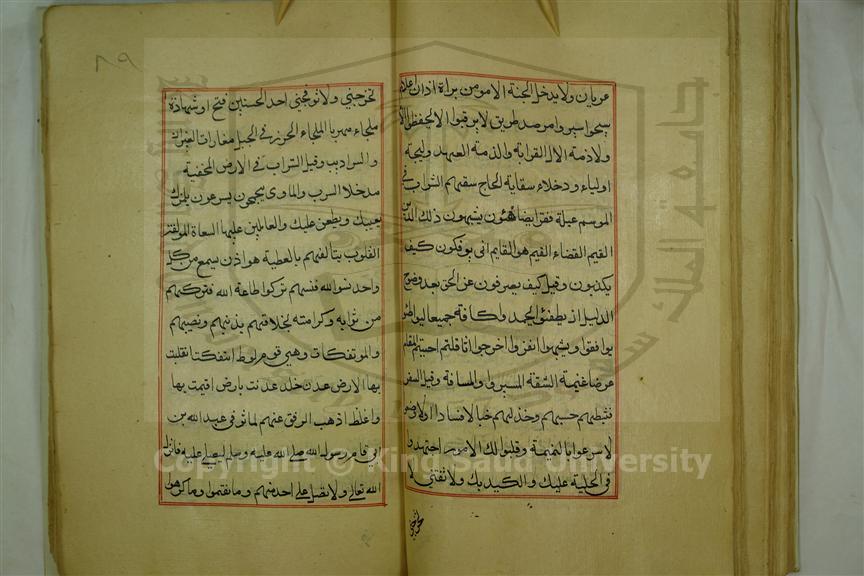 عريان ولا يدخل الجنة الا مومن براة اذان اعلام
سيحوا سيروا مرصد طريق لا يرقبوا الا لا يحفظوا الا
ولا ذمة الال القرابة والذمة العهد وليجة
اولياء ودخلاء سقاية الحاج سقيهم الشراب في
الموسم عيلة فقر ايضاهئون يشبهون ذلك الدين
القيم القضاء القيم هو القايم انى يوفكون كيف
يكذبون وقيل كيف يصرفون عن الحق بعد وضوح
الدليل ان يطفئوا ليخمد وكافة جميعا ليواطئوا
يوافقوا ويشبهوا انفروا اخرجوا اثاقلتم احببتم المقام
عرضا غنيمة الشقة المسير والمسافة وقيل السفر
فثبطهم حبسهم وخذلهم خبالا فسادا ولاوضعوا
لاسرعوا بالنميمة وقلبوا لك الامور اجتهدوا
في الحيلة عليك والكيد بك ولا تفتني لا
تخرجني
٨٩
تخرجني ولا توثمني احد الحسنيين فتح او شهادة
ملجاء مهربا الملجاء الحرز في الجبل مغارات الغيران
والسراديب وقيل السراب في الارض المخفية
مدخلا السرب والماوى يجمحون يسرعون يلمزك
يعيبك ويطعن عليك والعاملين عليها السعاة المولفة
القلوب يتالفهم بالعطية هو اذن يسمع من كل
واحد نسوا الله فنسيهم تركوا طاعة الله فتركهم
من ثوابه وكرامته بخلاقهم بدينهم ونصيبهم
والموتفكات وهي قوم لوط ائتفكت انقلبت
بها الارض عدن خلد عدنت بارض اقيمت بها
واغلظ اذهب الرفق عنهم لما توفى عبد الله بن
ابي قام رسول الله صلى الله عليه وسلم ليصلي عليه فانزل
الله تعالى ولا تصل على احد منهم وما نقموا وما كرهوا
Copyright © King Saud University
جامعة الملك سعود